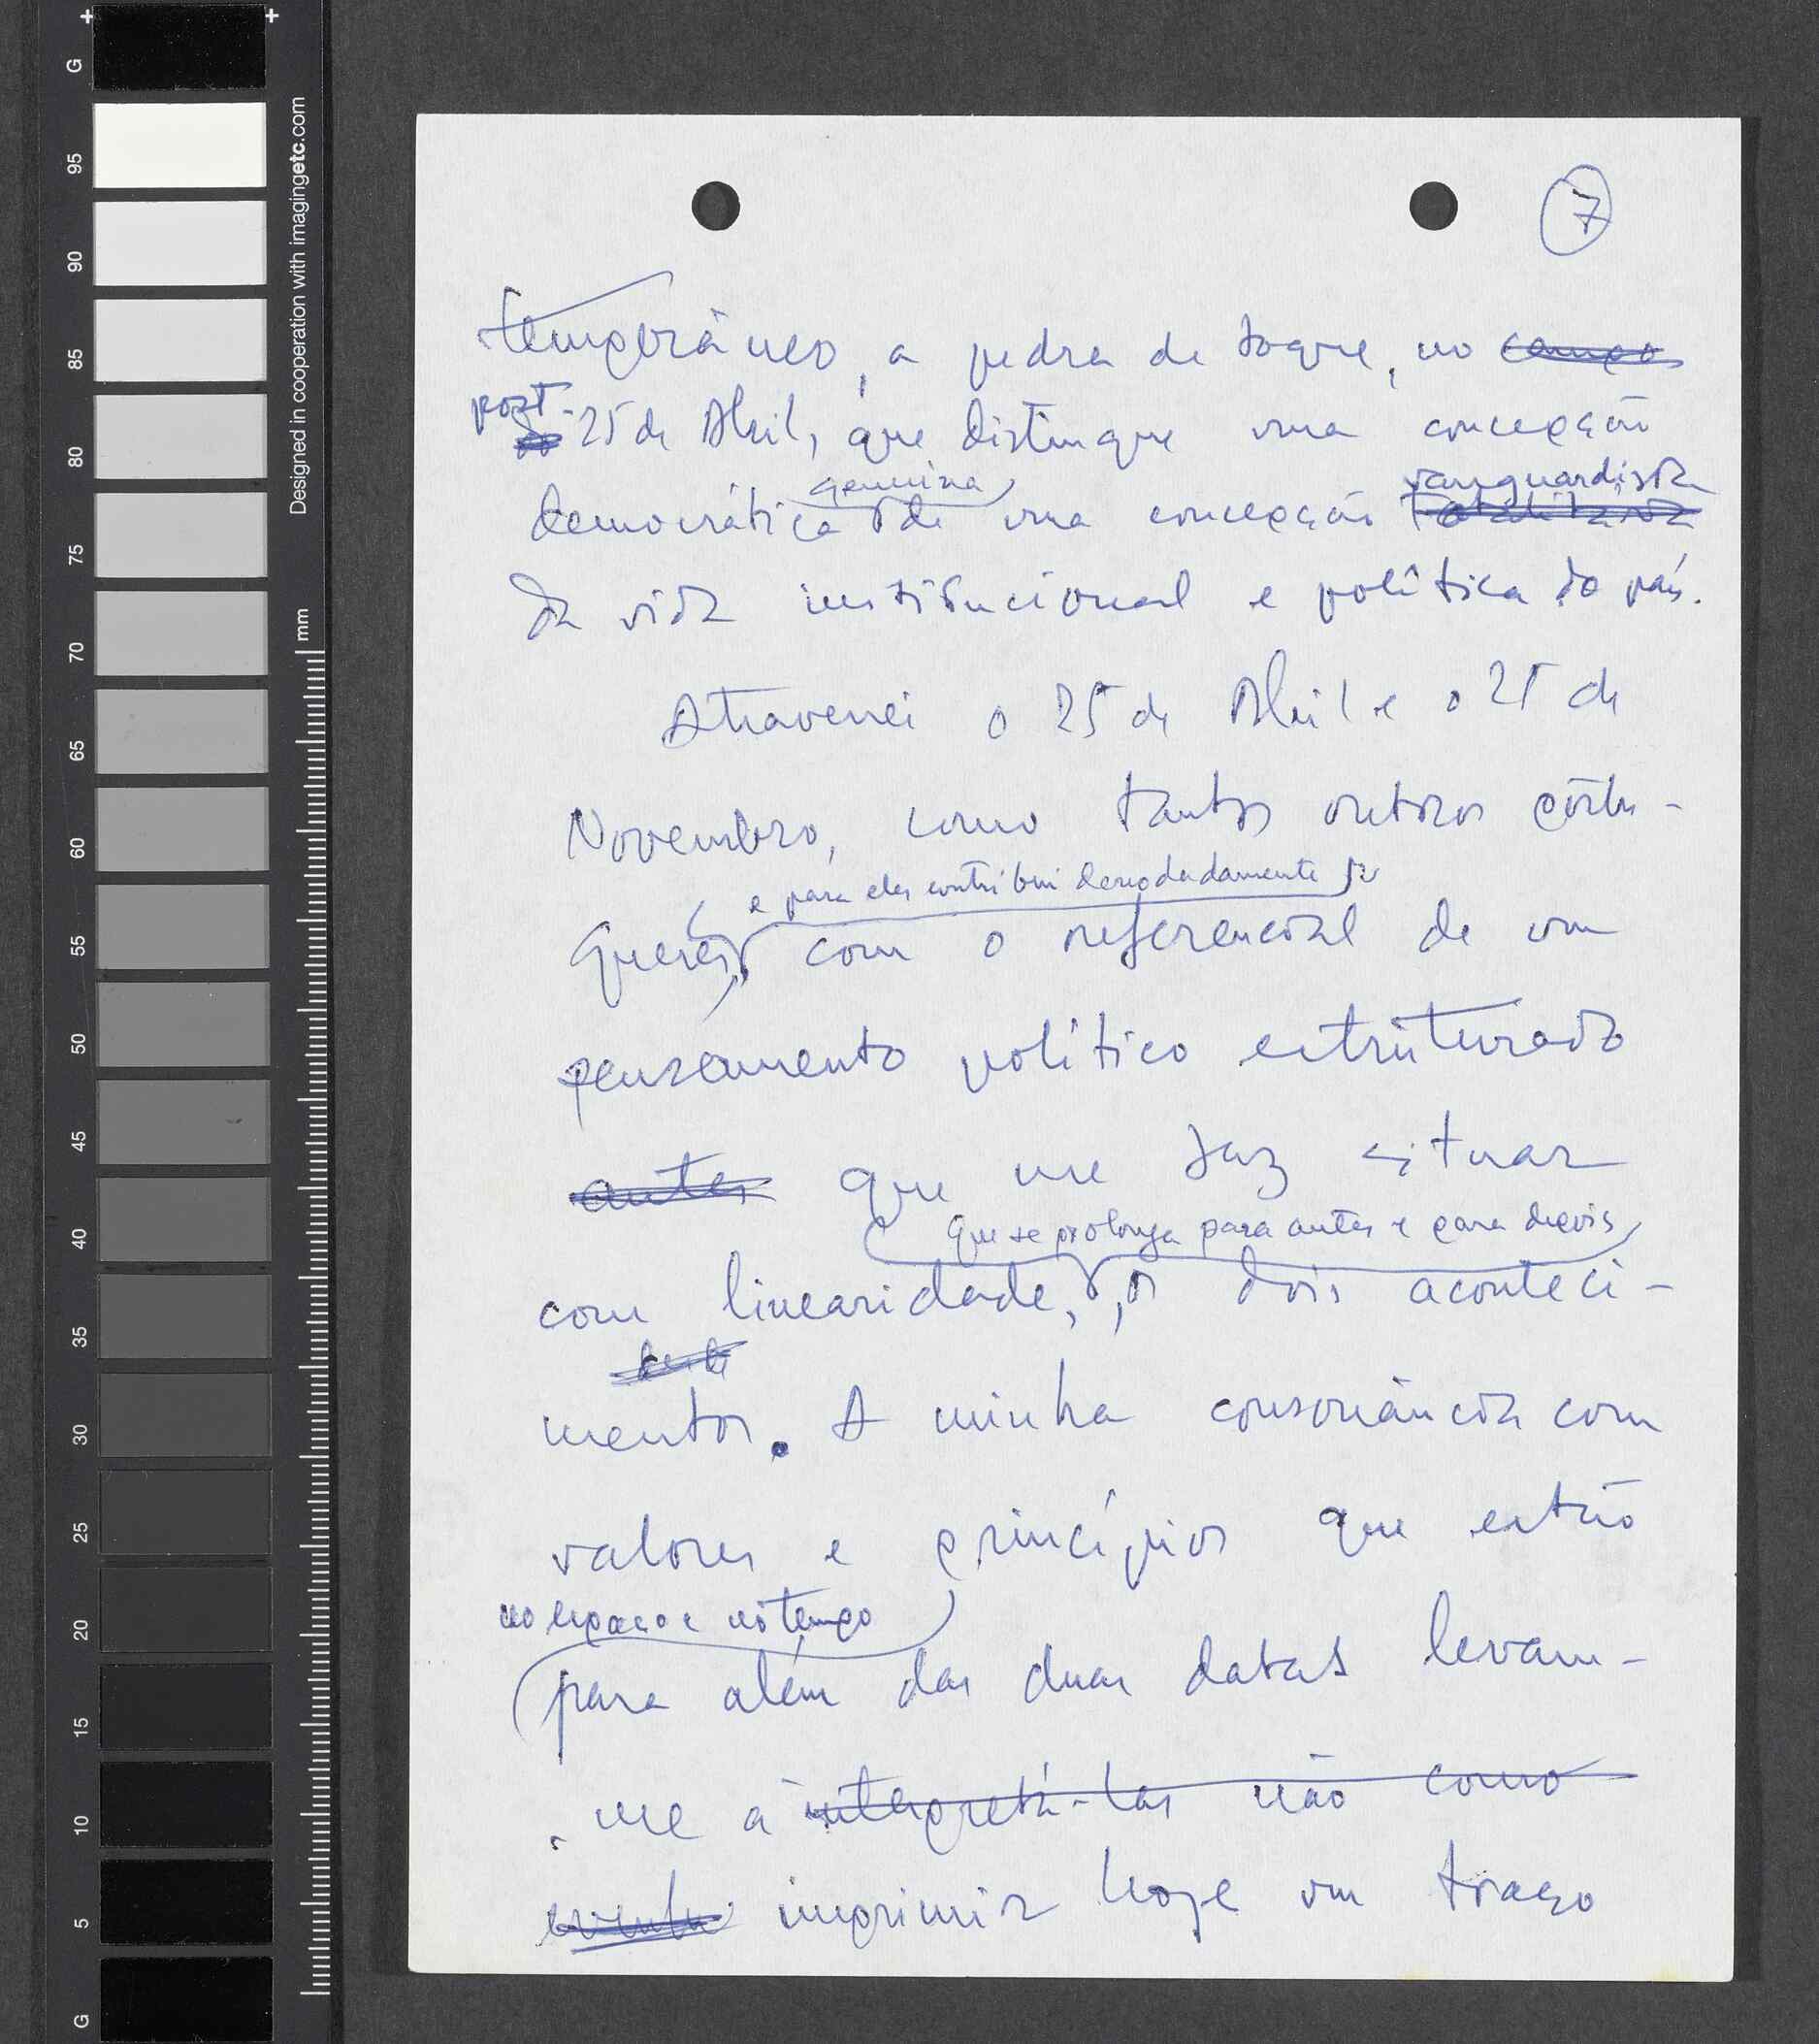 7
temporâneo, a pedra de toque, no campo
post-
25 de Abril, que distingue uma concepção
genuina
vanguardista
democrática de uma concepção totalitária
da vida institucional e política do país.
Atravessei o 25 de Abril e o 25 de
Novembro, como tantos outros portu-
e para eles contribui denodadamente
gueses, com o referencial de um
pensamento político estruturado
antes que me faz situar
que se prolonga para antes e para depois
com linearidade, os dois aconteci-
mentos. A minha consonância com
valores e princípios que estão
no espaço e no tempo
para além das duas datas levam-
me a interpretá-las não como
imprimir hoje um traço
G
95
90
85
80
75
70
65
60
55
50
45
40
35
30
25
20
15
10
5
G
Designed in cooperation with imagingetc.com
mm